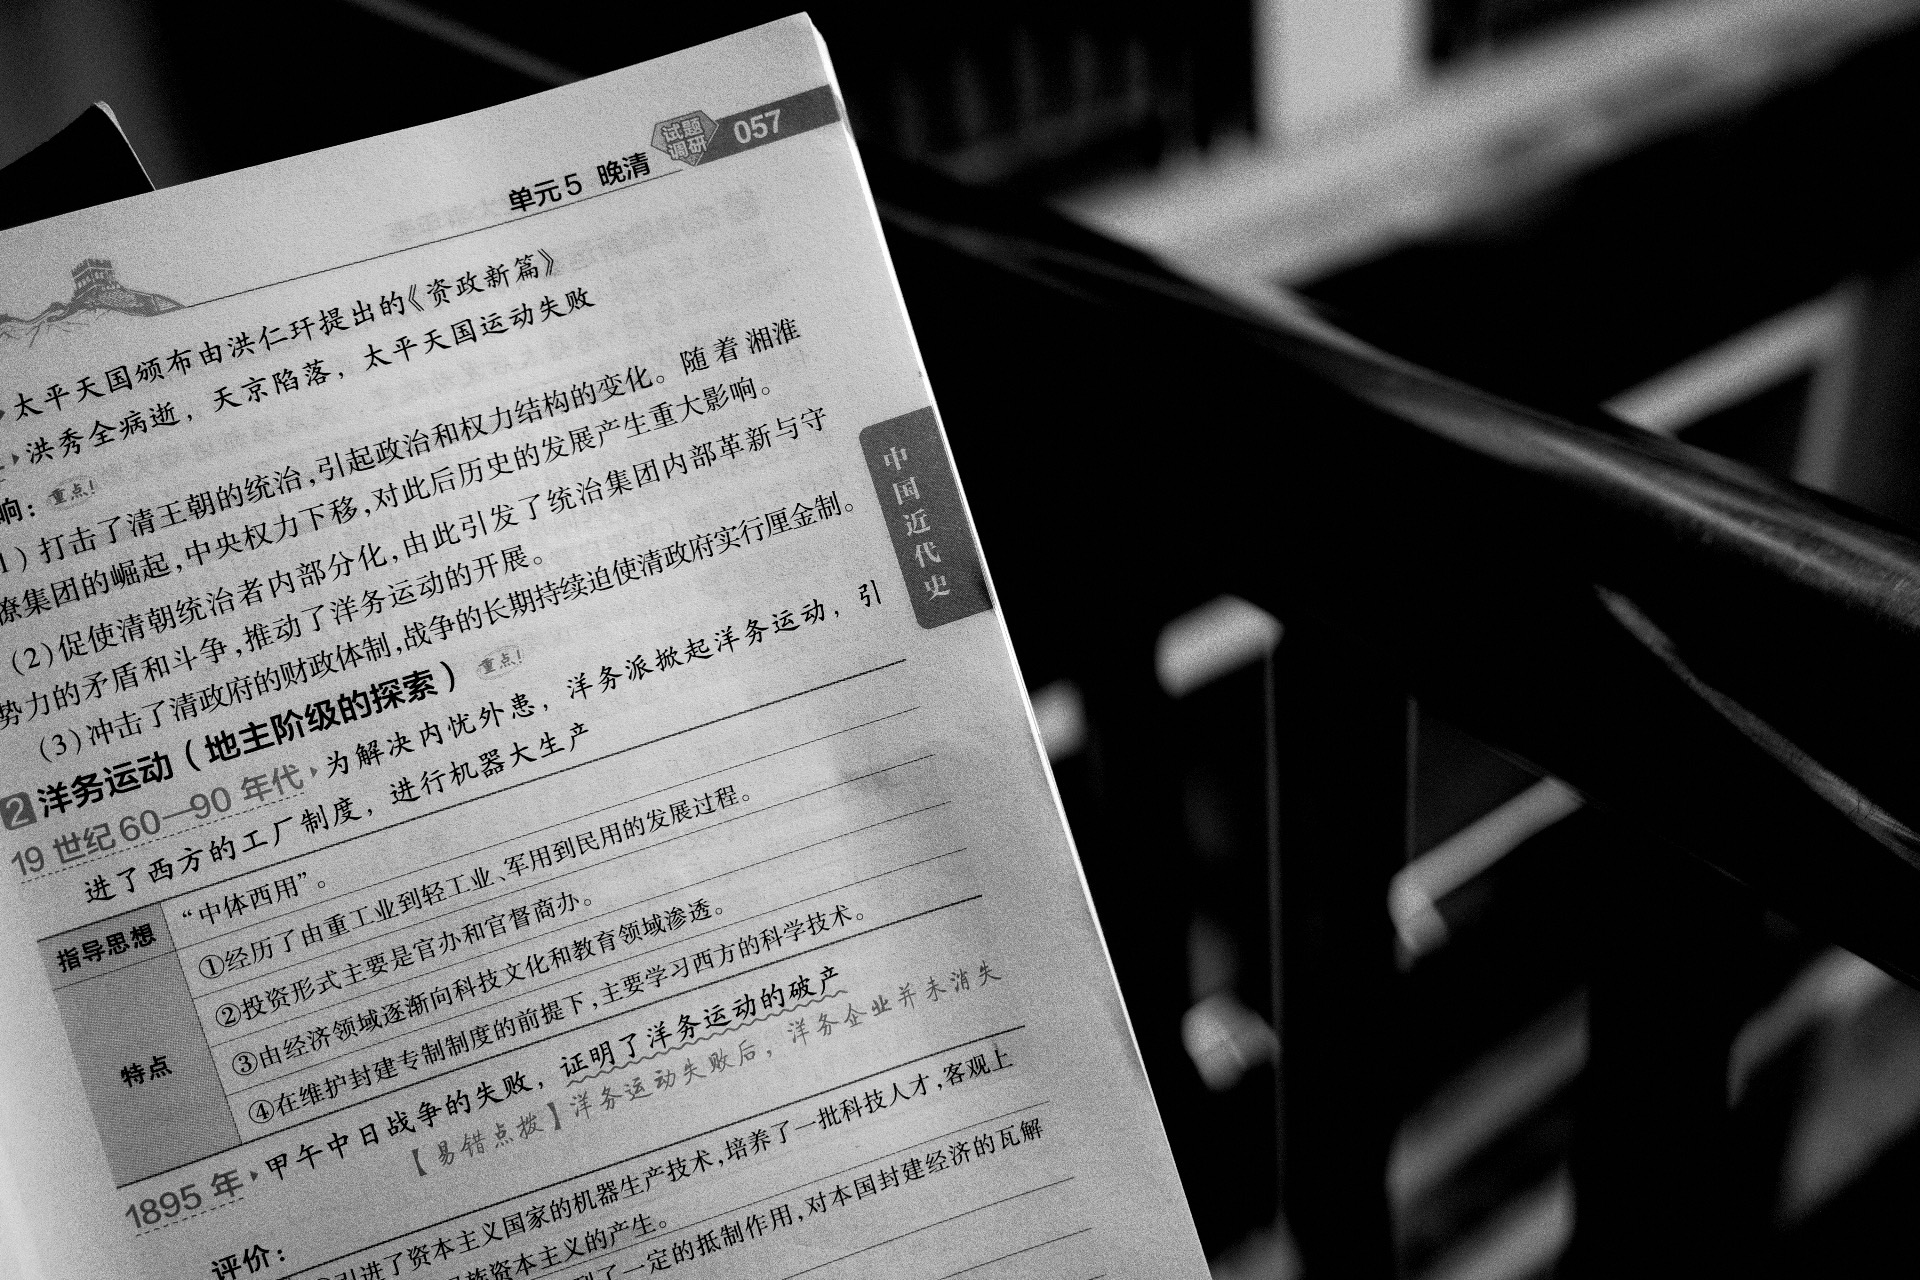 试题
调研
057
单元5 晚清
太平天国颁布由洪仁玕提出的《资政新篇》
洪秀全病逝，天京陷落，太平天国运动失败
响：重点!
1）打击了清王朝的统治,引起政治和权力结构的变化。随着湘淮
集团的崛起,中央权力下移,对此后历史的发展产生重大影响。
（2）促使清朝统治者内部分化,由此引发了统治集团内部革新与守
势力的矛盾和斗争,推动了洋务运动的开展。
（3）冲击了清政府的财政体制,战争的长期持续迫使清政府实行厘金制。
2 洋务运动（地主阶级的探索）重点!
19世纪60—90年代 为解决内忧外患，洋务派掀起洋务运动，引
进了西方的工厂制度，进行机器大生产
指导思想 “中体西用”。
特点
①经历了由重工业到轻工业、军用到民用的发展过程。
②投资形式主要是官办和官督商办。
③由经济领域逐渐向科技文化和教育领域渗透。
④在维护封建专制制度的前提下,主要学习西方的科学技术。
1895年 甲午中日战争的失败，证明了洋务运动的破产
【易错点拨】洋务运动失败后，洋务企业并未消失
评价：
引进了资本主义国家的机器生产技术,培养了一批科技人才,客观上
族资本主义的产生。
到了一定的抵制作用,对本国封建经济的瓦解
中国近代史